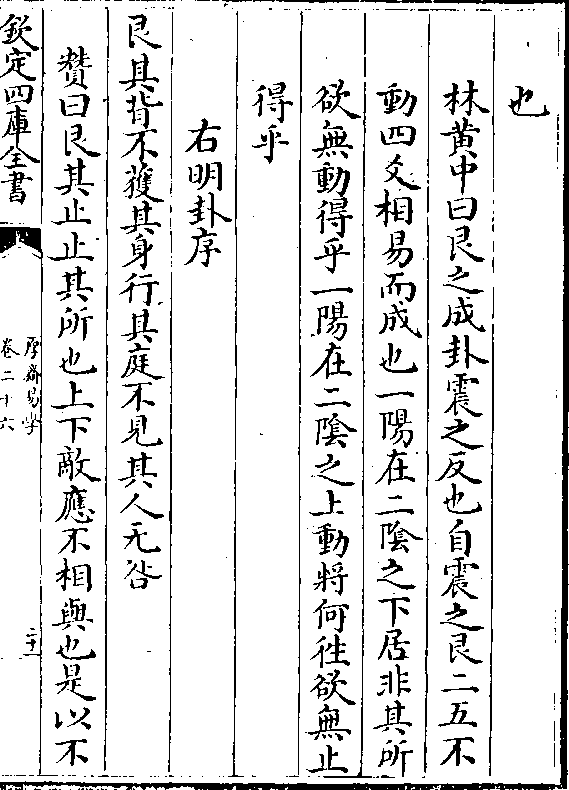 也
林黄中曰艮之成卦震之反也自震之艮二五不
動四爻相易而成也一陽在二陰之下居非其所
欲無動得乎一陽在二陰之上動將何往欲無止
得乎
右明卦序
艮其背不獲其身行其庭不見其人无咎
贊曰艮其止止其所也上下敵應不相與也是以不
欽定四庫全書
厚齋易學
卷二十六
二十一